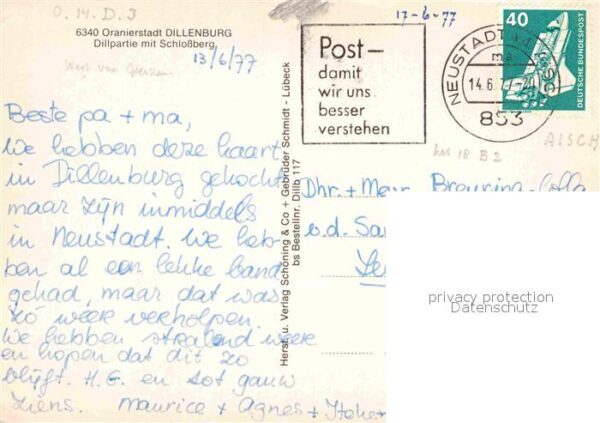 O. 14. D. 3
6340 Oranierstadt DILLENBURG
Dillpartie mit Schloßberg
13/6/77
Beste pa + ma,
We hebben deze kaart
in Dillenburg gekocht
maar zijn inmiddels
in Neustadt. We heb-
ben al een lekke band
gehad, maar dat was
zo weer verholpen.
We hebben stralend weer
en hopen dat dit zo
blijft. H.G. en tot gauw
ziens. Maurice + Agnes +
Herst. u. Verlag Schöning & Co + Gebrüder Schmidt - Lübeck
bs Bestellnr. Dillb 117
17-6-77
Post-
damit
wir uns
besser
verstehen
NEUSTADT a.d.
14.6.77-21
853
AISCH
40
DEUTSCHE BUNDESPOST
18 B 2
Dhr. + Mevr.
v.d.
privacy protection
Datenschutz